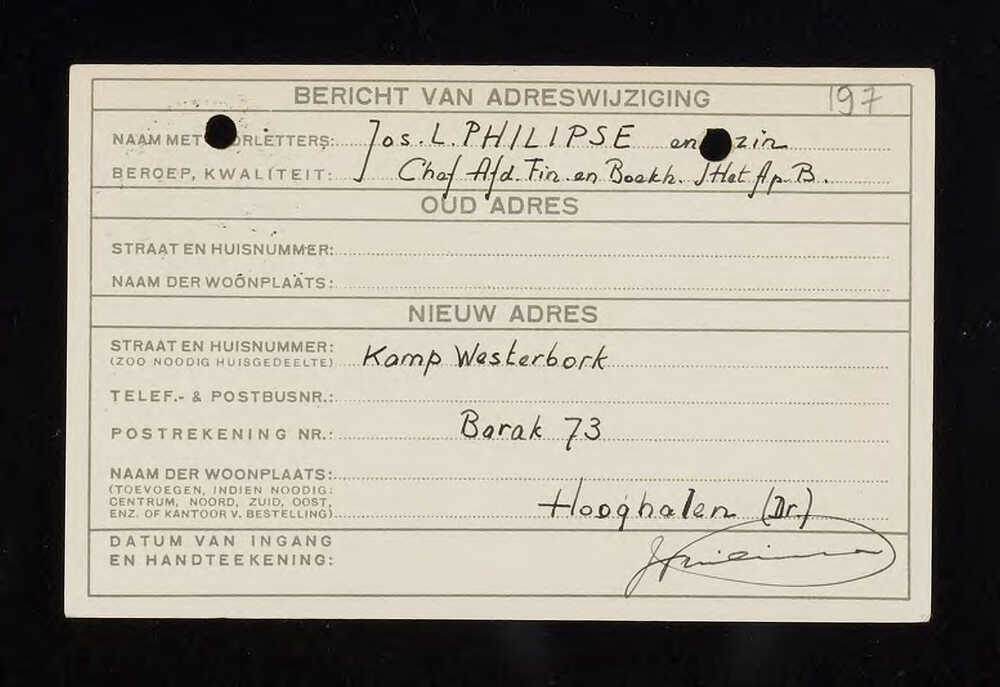 BERICHT VAN ADRESWIJZIGING 197
NAAM MET ORLETTERS: Jos. L. PHILIPSE en zin
BEROEP, KWALITEIT: Chef Afd. Fin. en Boekh. Het Ap. B.
OUD ADRES
STRAAT EN HUISNUMMER:
NAAM DER WOONPLAATS:
NIEUW ADRES
STRAAT EN HUISNUMMER: Kamp Westerbork
(ZOO NOODIG HUISGEDEELTE)
TELEF.- & POSTBUSNR.:
POSTREKENING NR.: Barak 73
NAAM DER WOONPLAATS:
(TOEVOEGEN, INDIEN NOODIG:
CENTRUM, NOORD, ZUID, OOST,
ENZ. OF KANTOOR V. BESTELLING) Hooghalen (Dr.)
DATUM VAN INGANG
EN HANDTEEKENING: